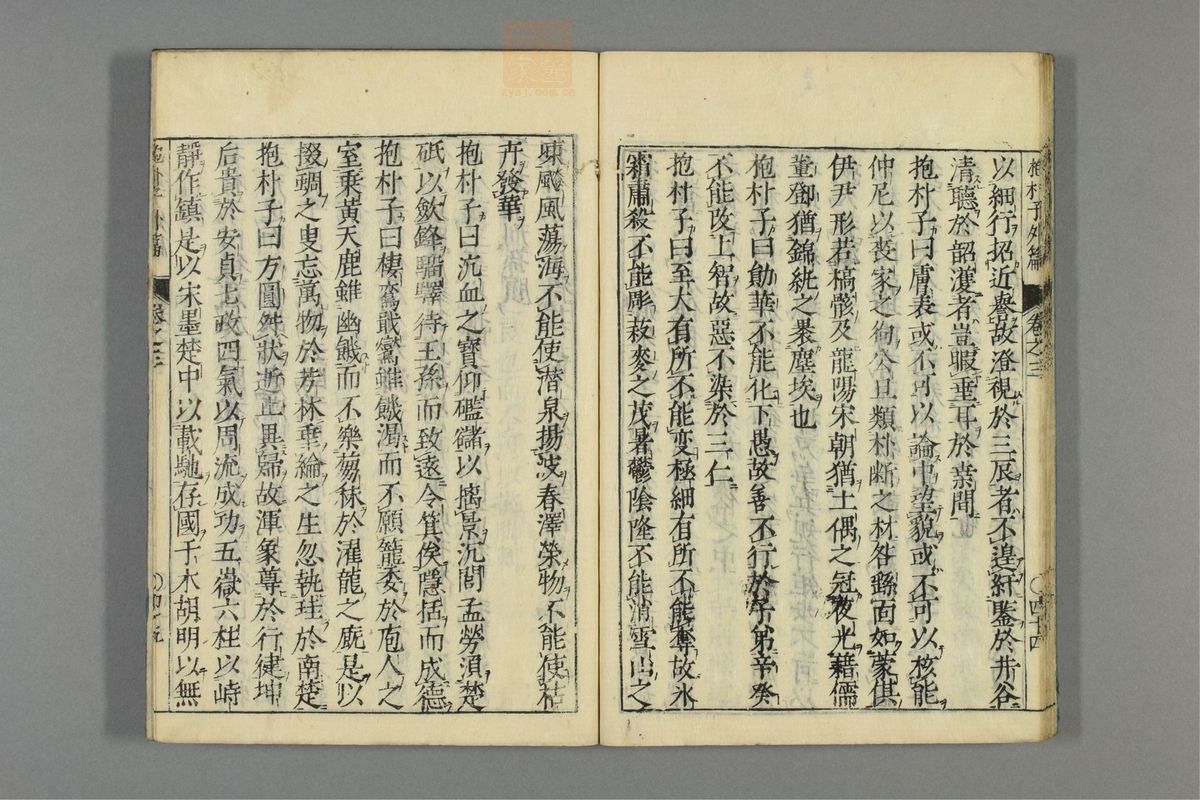 抱朴子外篇 卷之三 〇四十四
以細行招近譽故澄視於三辰者不遑紆鑒於井谷
清聽於韶濩者豈暇垂耳於桒間
抱朴子曰膚表或不可以論中望貌或不可以核能
仲尼以丧家之狗公旦類朴斷之材咎繇面如蒙倛
伊尹形若槁骸及龍陽宋朝猶土偶之冠夜光藉孺
董鄧猶錦紈之裹塵埃也
抱朴子曰勛華不能化下愚故善不行於子弟辛癸
不能改上智故惡不染於三仁
抱朴子曰至大有所不能变極細有所不能奪故氷
霜肅殺不能彫菽麥之茂暑鬱陰隆不能消雪山之
凍飈風蕩海不能使潛泉揚波春澤榮物不能使枯
卉發華
抱朴子曰泬血之寳仰礛䃴以摛景沉閭孟勞湏楚
砥以歛鋒驑驛待王孫而致遠令箕俟隱括而成德
抱朴子曰棲鸞戢鷟雖饑渴而不願籠委於庖人之
室乗黃天鹿雖幽饑而不樂蒭秣於濯龍之廐是以
掇蜩之叟忘萬物於芳林垂綸之生忽執珪於南楚
抱朴子曰方圓舛狀逝止異歸故渾象尊於行健坤
后貴於安貞七政四氣以周流成功五嶽六柱以峙
靜作鎮是以宋墨楚申以載馳存國干木胡明以無
卷之三